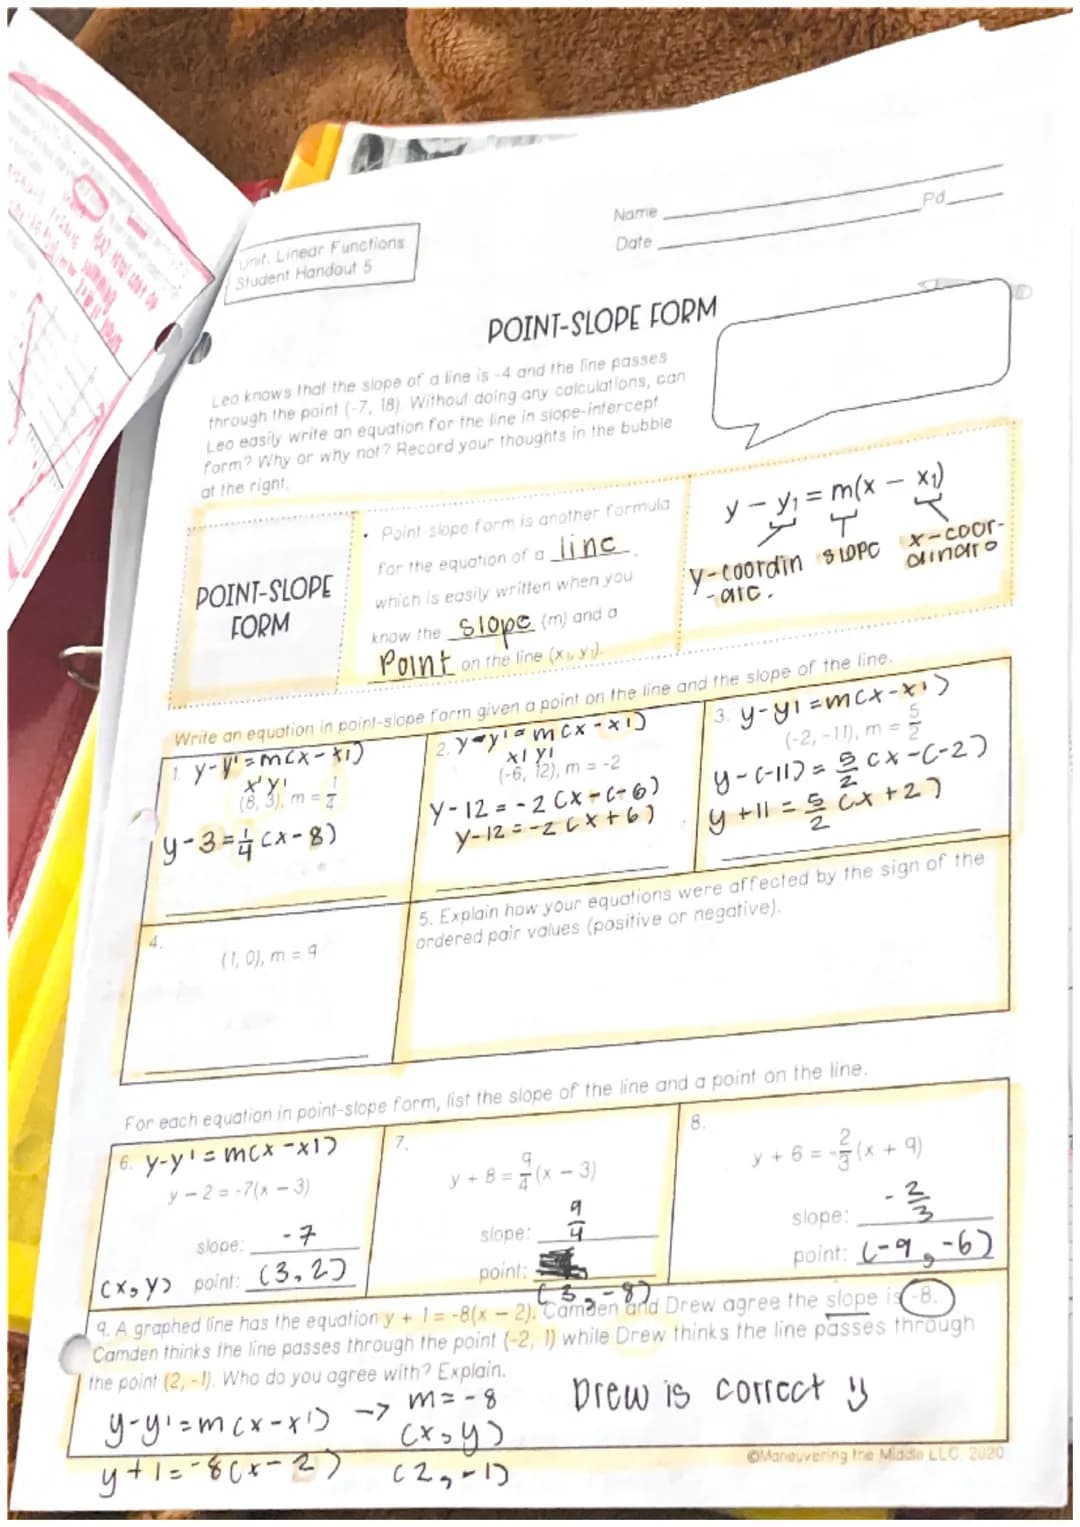 Unit: Linear Functions
Student Handout 5
Name
Date
Pd
POINT-SLOPE FORM
Leo knows that the slope of a line is -4 and the line passes
through the point (-7, 18). Without doing any calculations, can
Leo easily write an equation for the line in slope-intercept
form? Why or why not? Record your thoughts in the bubble
at the right.
POINT-SLOPE
FORM
• Point-slope form is another formula
for the equation of a line
which is easily written when you
know the slope (m) and a
Point on the line (x₁, y₁).
y - y₁ = m(x - x₁)
y-coordin
-ate.
slope
x-coor-
dinate
Write an equation in point-slope form given a point on the line and the slope of the line.
1. y-y1=m(x-x1)
x1 y1
(8, 3), m = 1/4
y-3=1/4(x-8)
2. y-y1=m(x-x1)
x1 y1
(-6, 12), m = -2
y-12=-2(x-(-6)
y-12=-2(x+6)
3. y-y1=m(x-x1)
(-2, -11), m = 5/2
y-(-11)=5/2(x-(-2)
y+11=5/2(x+2)
4.
(1, 0), m = 9
5. Explain how your equations were affected by the sign of the
ordered pair values (positive or negative).
For each equation in point-slope form, list the slope of the line and a point on the line.
6. y-y1=m(x-x1)
y - 2 = -7(x - 3)
slope: -7
(x,y) point: (3,2)
7.
y + 8 = 9/4(x - 3)
slope: 9/4
point:
(3,-8)
8.
y + 6 = -2/3(x + 9)
slope: -2/3
point: (-9,-6)
9. A graphed line has the equation y + 1 = -8(x - 2). Camden and Drew agree the slope is -8.
Camden thinks the line passes through the point (-2, 1) while Drew thinks the line passes through
the point (2, -1). Who do you agree with? Explain.
y-y1=m(x-x1) -> m=-8
(x,y)
y+1=-8(x-2) (2,-1)
Drew is correct :)
©Maneuvering the Middle LLC, 2020